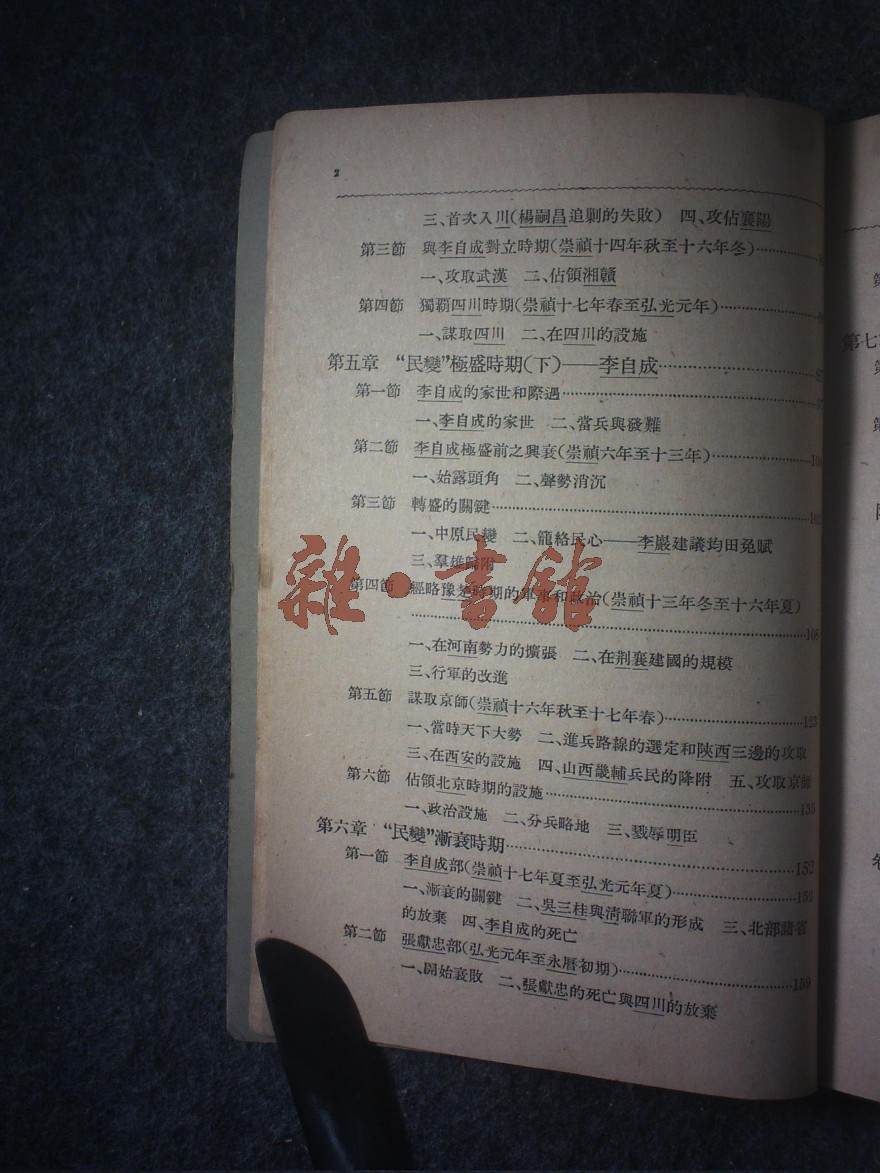 2
三、首次入川(楊嗣昌追剿的失敗)　四、攻佔襄陽
第三節　與李自成對立時期(崇禎十四年秋至十六年冬)
一、攻取武漢　二、佔領湘贛
第四節　獨霸四川時期(崇禎十七年春至弘光元年)
一、謀取四川　二、在四川的設施
第五章　“民變”極盛時期(下)——李自成
第一節　李自成的家世和際遇
一、李自成的家世　二、當兵與發難
第二節　李自成極盛前之興衰(崇禎六年至十三年)
一、始露頭角　二、聲勢消沉
第三節　轉盛的關鍵
一、中原民變　二、籠絡民心——李巖建議均田免賦
三、羣雄歸附
第四節　經略豫楚時期的軍事和政治(崇禎十三年冬至十六年夏)
108
一、在河南勢力的擴張　二、在荆襄建國的規模
三、行軍的改進
第五節　謀取京師(崇禎十六年秋至十七年春)123
一、當時天下大勢　二、進兵路線的選定和陝西三邊的攻取
三、在西安的設施　四、山西畿輔兵民的降附　五、攻取京師
第六節　佔領北京時期的設施135
一、政治設施　二、分兵略地　三、戮辱明臣
第六章　“民變”漸衰時期152
第一節　李自成部(崇禎十七年夏至弘光元年夏)152
一、漸衰的關鍵　二、吳三桂與清聯軍的形成　三、北部諸省
的放棄　四、李自成的死亡
第二節　張獻忠部(弘光元年至永曆初期)159
一、開始衰敗　二、張獻忠的死亡與四川的放棄
第七
雜·書館